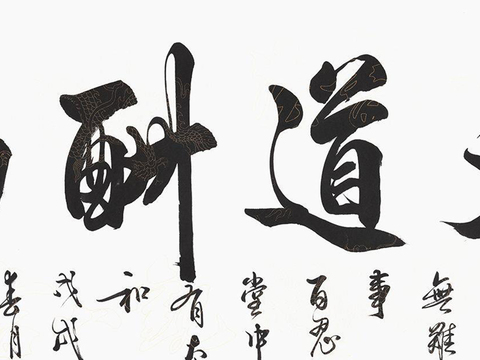 道酬
無難
事
百忍
堂中
有太
和
戊戌
春月